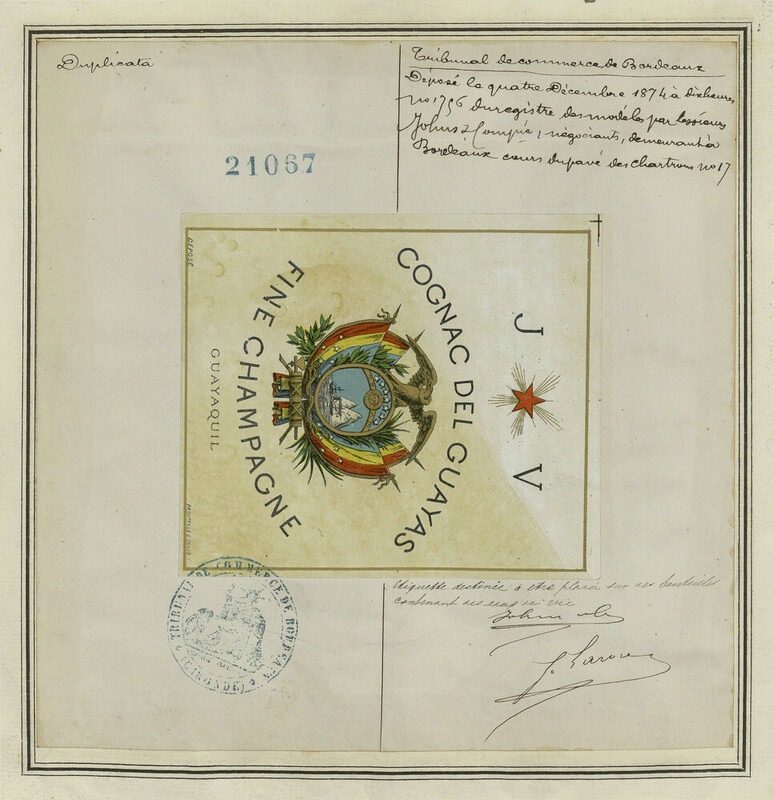 Duplicata
Tribunal de commerce de Bordeaux
Déposé le quatre Décembre 1874 à dix heures
no 1756 du registre des modèles par les sieurs
Johns & Compie, négociants, demeurant à
Bordeaux cours du pavé des Chartrons no 17
21067
DÉPOSÉ
J V
COGNAC DEL GUAYAS
FINE CHAMPAGNE
GUAYAQUIL
Etiquette destinée à être placée sur des bouteilles
contenant des eaux de vie
TRIBUNAL DE COMMERCE DE BORDEAUX
(GIRONDE)